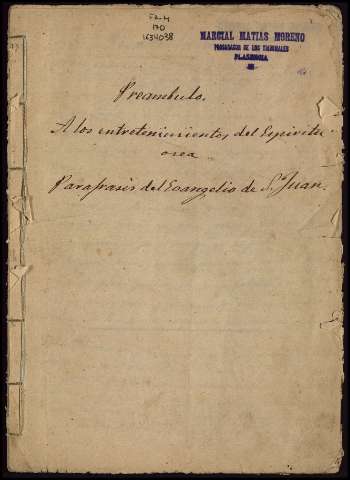 FA-M
170
1634038
MARCIAL MATIAS MORENO
PROCURADOR DE LOS TRIBUNALES
PLASENCIA
Preambulo.
A los entretenimientos del Espiritu
osea
Parafrasis del Evangelio de Sn. Juan.